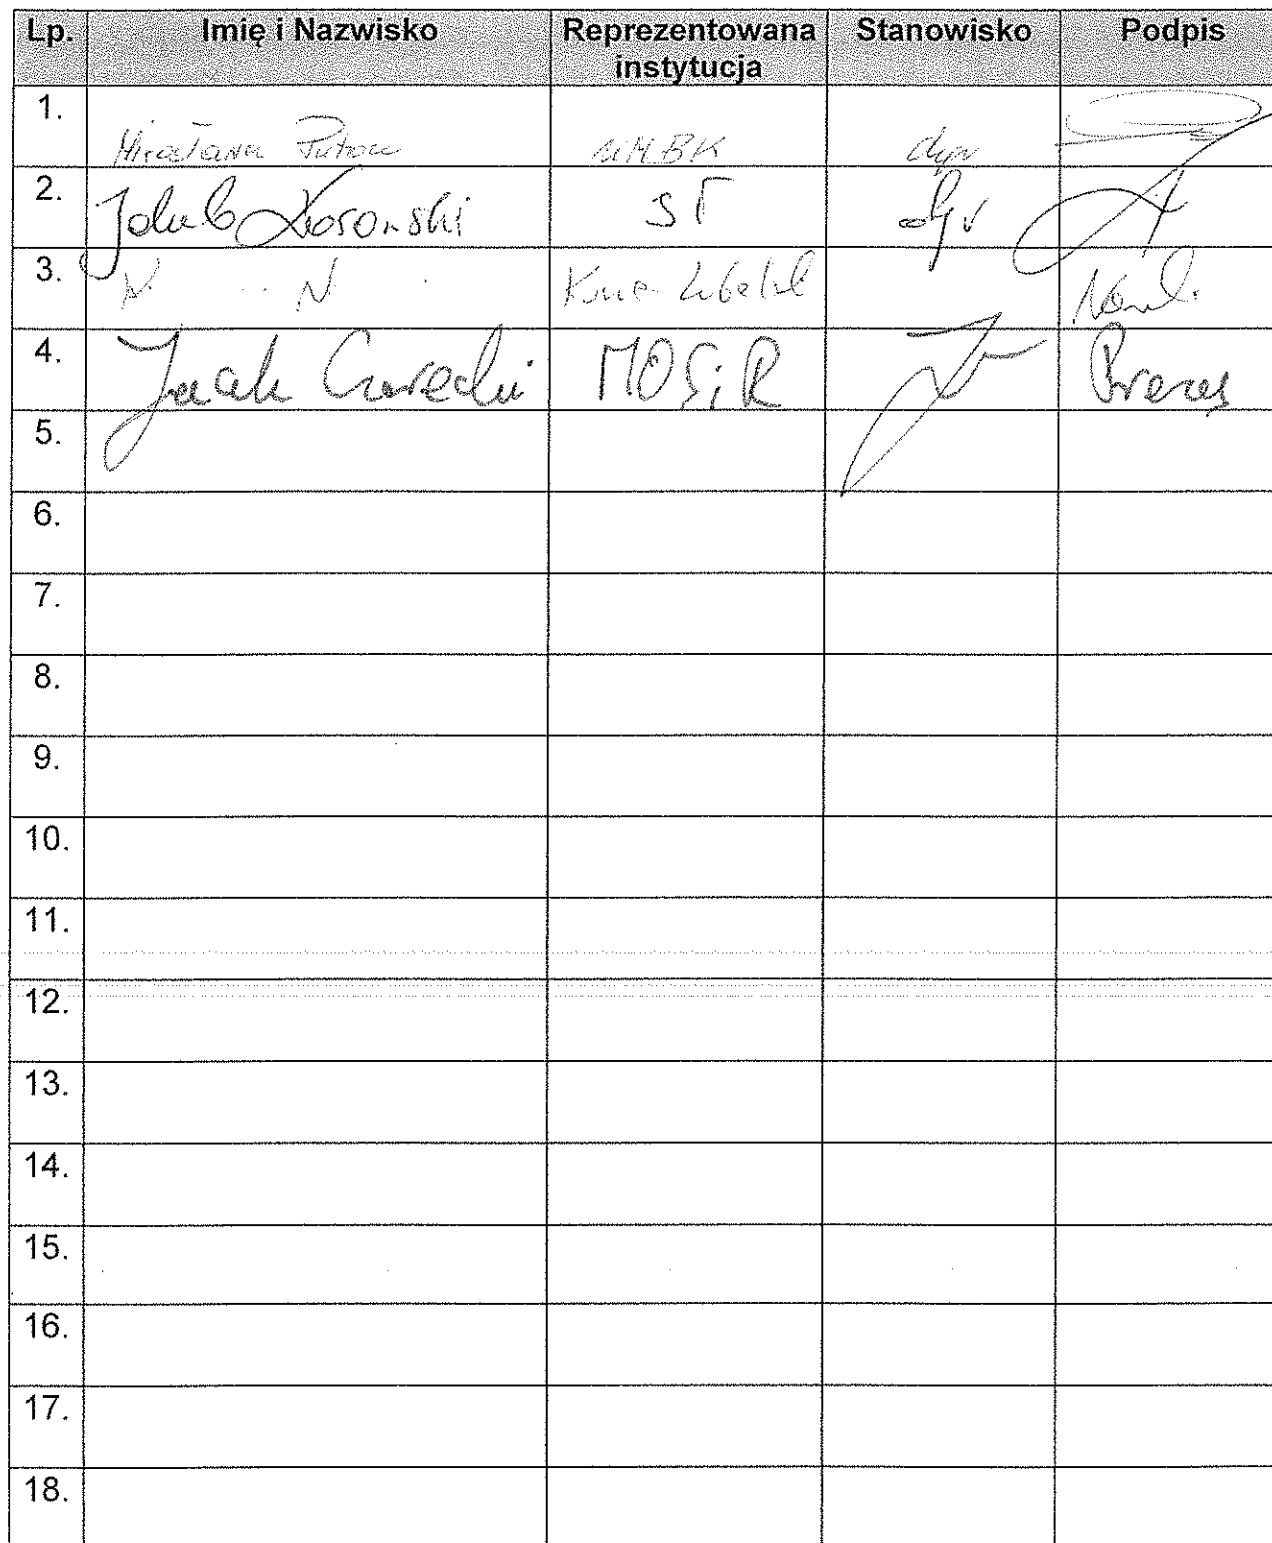 Lp. Imię i Nazwisko Reprezentowana instytucja Stanowisko Podpis
1. dyr
2. Jakub Kosowski ST dyr
3. N. N.
4. Jacek Czarecki MOSiR Prezes
5.
6.
7.
8.
9.
10.
11.
12.
13.
14.
15.
16.
17.
18.